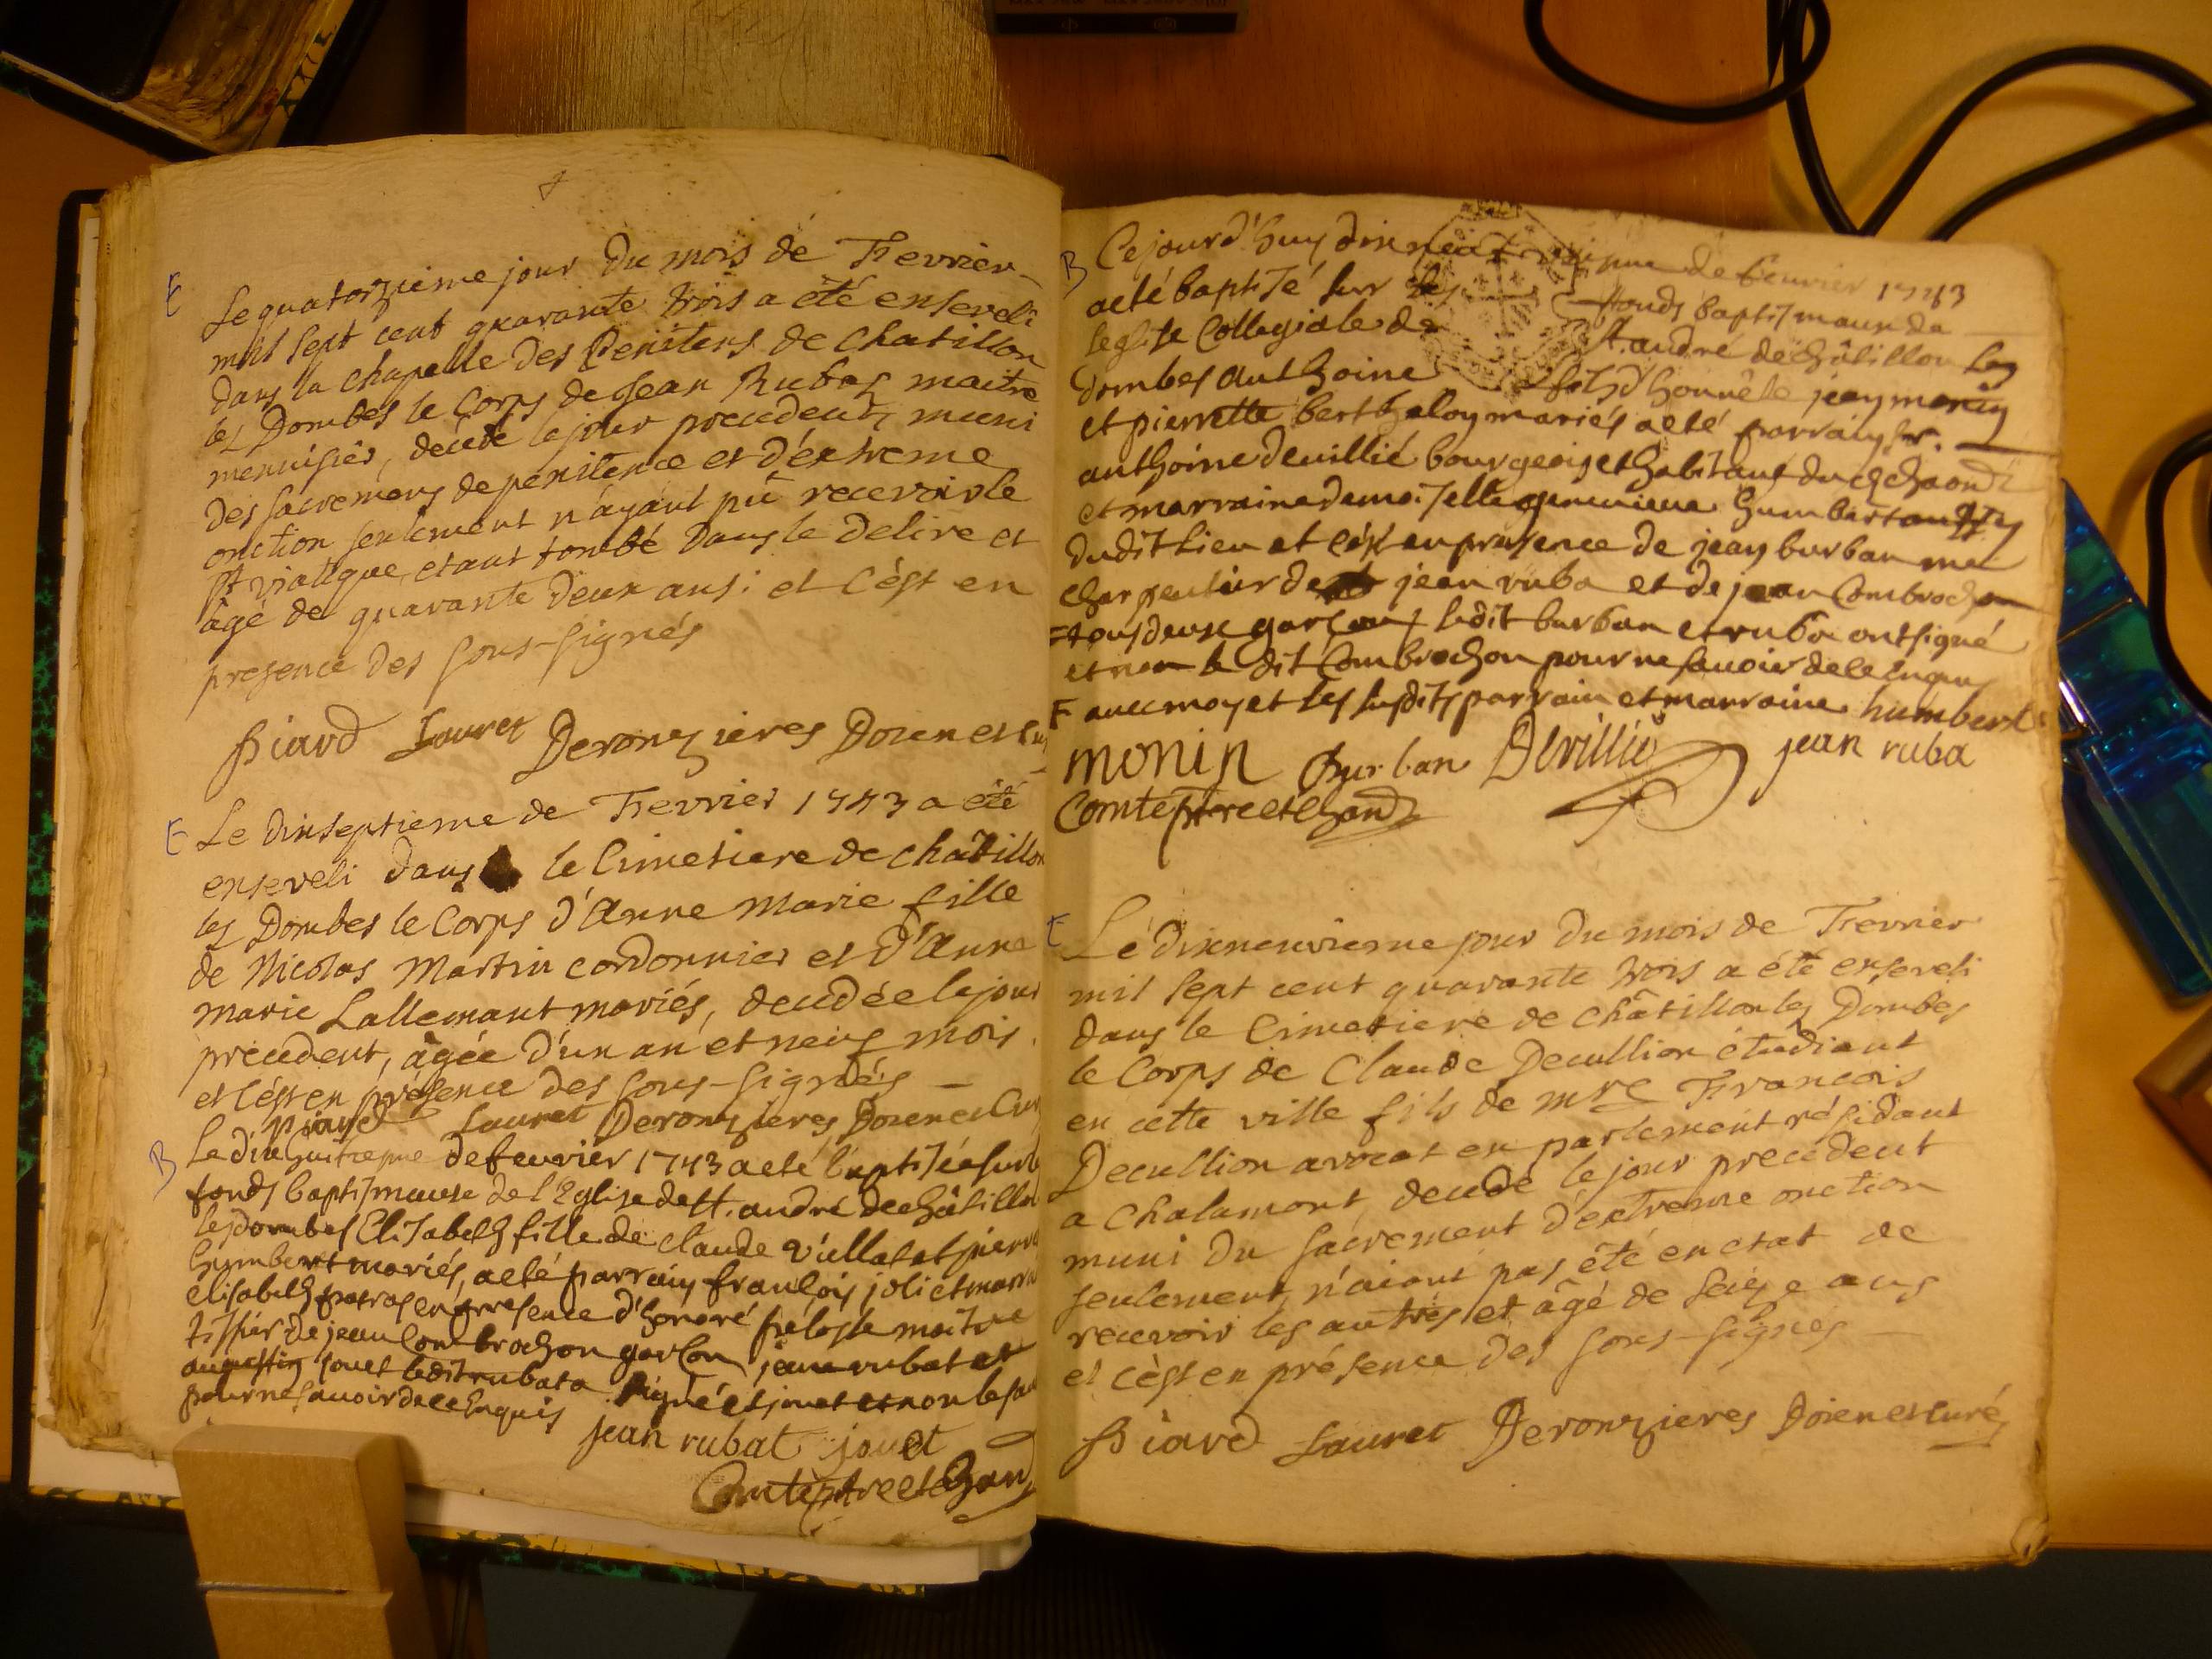 E
Le quatorzieme jour du mois de Fevrier
mil sept cent quarante trois a été enseveli
dans la chapelle des Penitens de Chatillon
les Dombes le Corps de Jean Rubas maitre
menuisier, decedé le jour precedent, muni
des sacremens de penitence et d'éxtreme
onction seulement n'ayant pû recevoir le
St viatique, etant tombé dans le delire et
âgé de quarante deux ans: et c'ést en
presence des sous-signés
Biard Lauret Deronzieres Doien et
E
Le dixseptieme de Fevrier 1743 a été
enseveli dans le Cimetiere de Châtillon
les Dombes le Corps d'Anne Marie fille
de Nicolas Martin cordonnier et d'Anne
marie Lallemant mariés, decedée le jour
precedent, âgée d'un an et neuf mois.
et c'ést en présence des sous-signés
Biard Lauret Deronzieres Doien et Curé
B
Le dix huitieme de fevrier 1743 a eté baptisée sur les
fonds baptismaux de l'Eglise de st. andré de châtillon
les dombes Elisabeth fille de claude Viellat et pierre
humbert mariés, a eté parrain françois joli et marra
elisabeth patras en presence d'honoré maitre
tissier de jean Combrochon garçon jean rubat et
augustin jouet ledit rubat a signé et jouet et non le
pour ne savoir de ce enquis
jean rubat jouet
Comte ptre et chan
B
Ce jourd'huy dix neuvieme de fevrier 1743
a eté baptisé sur les fonds baptismaux de
leglise Collegiale de st. andré de châtillon les
dombes anthoine fils d'honnête jean monin
et pierrette bertheloy mariés a eté parrain sr.
anthoine devillié bourgeois et habitant du
et marraine demoiselle genevieve humbert aussy
dudit lieu et c'ést en presence de jean burban me
charpentier de jean ruba et de jean Combrochon
tous deux garçons ledit burban et ruba ont signé
et non le dit Combrochon pour ne savoir de ce enquis
avec moy et les susdits parrain et marraine humbert
monin Burban Devillié jean ruba
Comte ptre et chan
E
Le dixneuvieme jour du mois de Fevrier
mil sept cent quarante trois a été enseveli
dans le Cimetiere de Châtillon les Dombes
le Corps de Claude Decullion étudiant
en cette ville fils de mre François
Decullion avocat en parlement résidant
a Chalamont, decedé le jour precedent
muni du sacrement d'éxtreme onction
seulement, n'aiant pas été en etat de
recevoir les autres et âgé de seize ans
et c'ést en présence des sous-signés
Biard Lauret Deronzieres Doien et curé